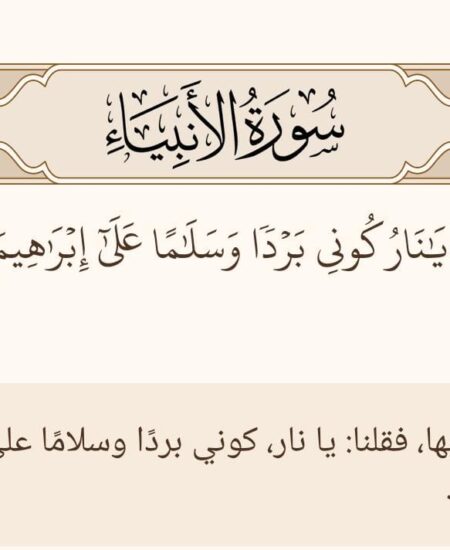 سُورَةُ الأَنبِيَاءِ
يَٰنَارُ كُونِي بَرۡدٗا وَسَلَٰمًا عَلَىٰٓ إِبۡرَٰهِيمَ
فقلنا: يا نار، كوني بردًا وسلامًا على